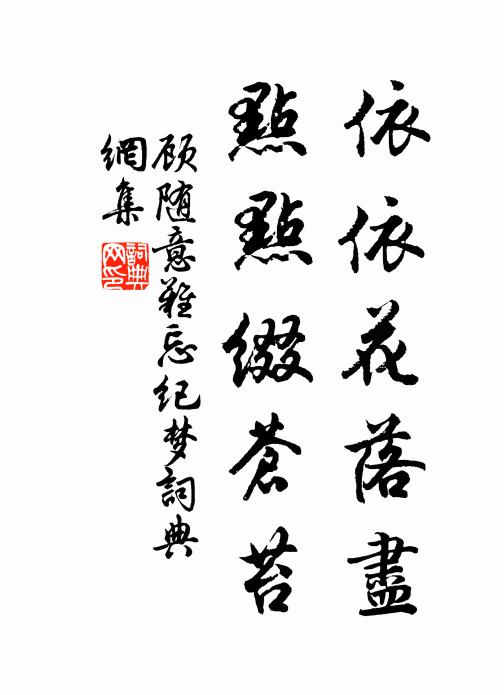 依依花落盡
點點綴蒼苔
顾随意難忘纪梦詞典
網集
詞典
网印